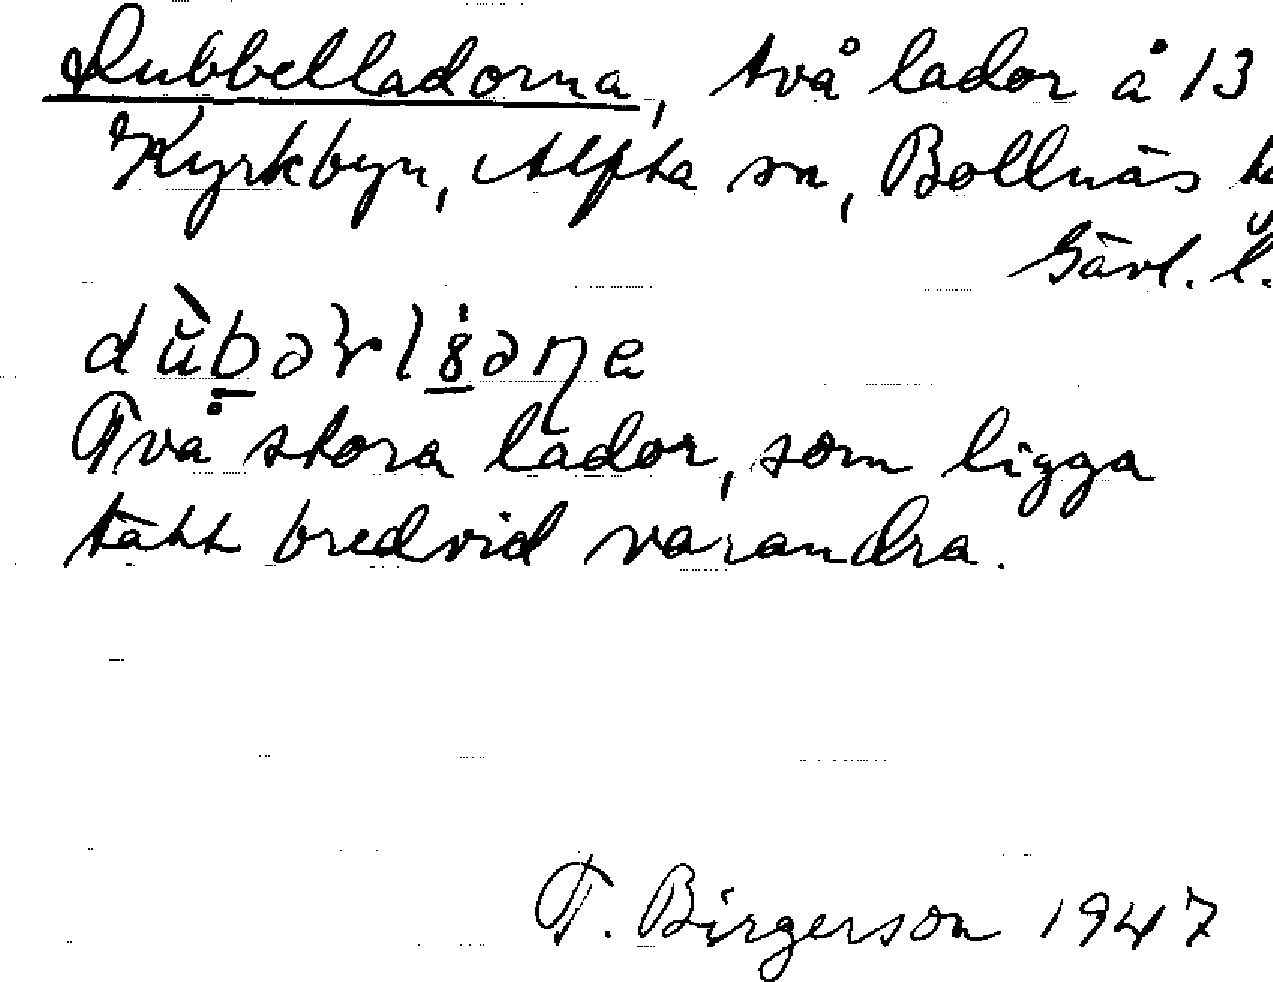 Dubbelladorna, två lador å 13
Kyrkbyn, Alfta sn, Bollnäs
Gävl. l.
Två stora lador, som ligga
tätt bredvid varandra.
T. Birgerson 1947